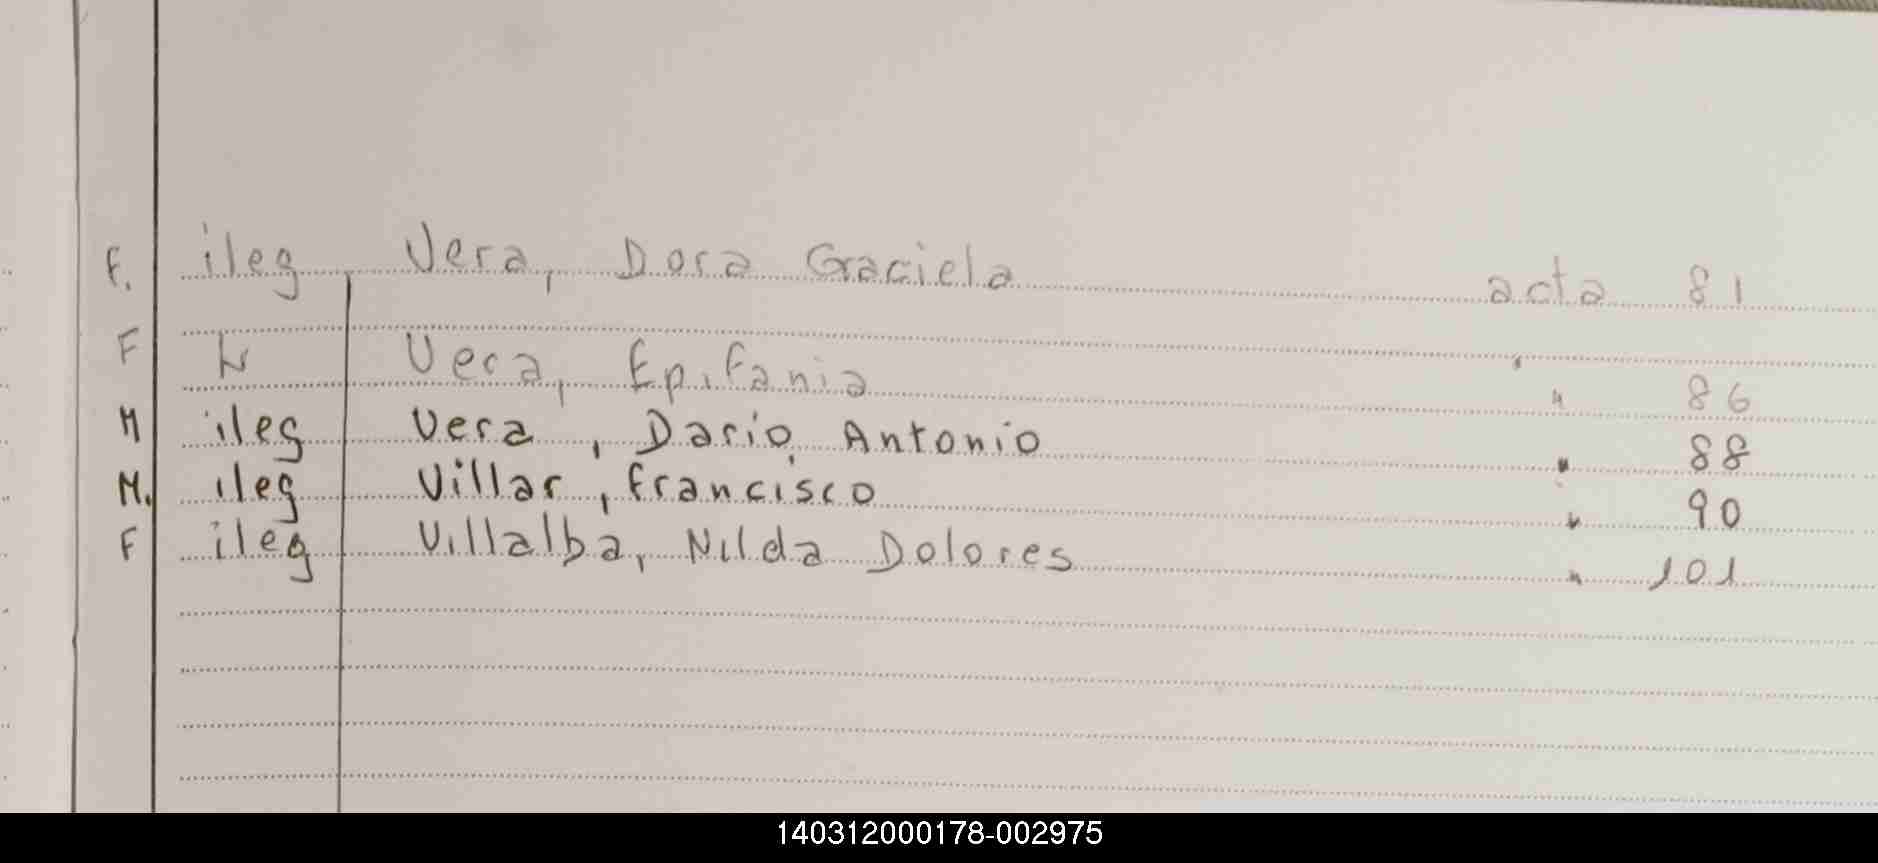 F. ileg Vera, Dora Graciela acta 81
F Vera, Epifania " 86
M ileg Vera, Dario Antonio " 88
M. ileg Villar, Francisco " 90
F ileg Villalba, Nilda Dolores " 101
140312000178-002975